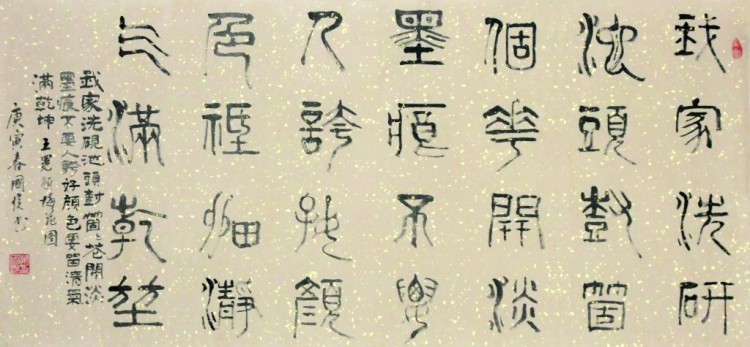 我家洗研
池頭尌箇
個華開淡
墨痕不要
人誇好顏
色祗留瀞
气滿乾坤
我家洗硯池頭尌箇々花開淡
墨痕不要人誇好顏色留清氣
滿乾坤 王冕題梅花圖
庚寅春國俊书